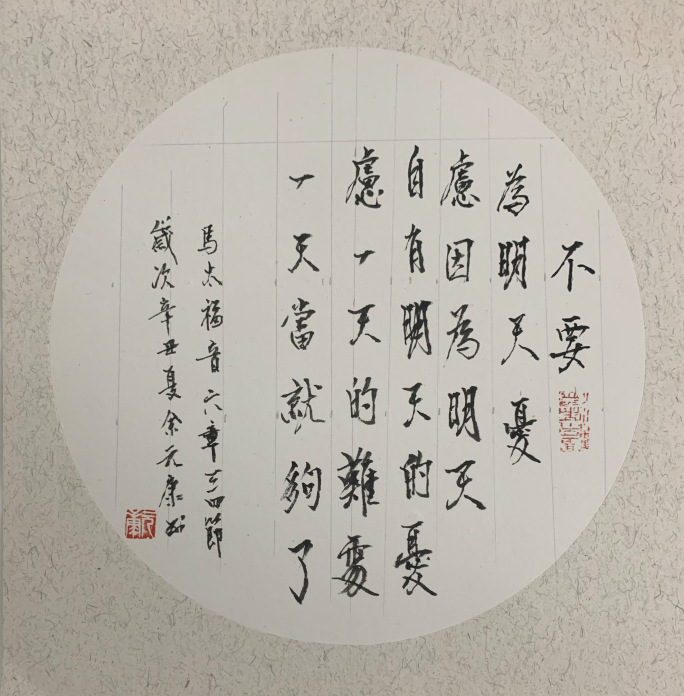 不要
為明天憂
慮因為明天
自有明天的憂
慮一天的難處
一天當就夠了
馬太福音六章三四節
歲次辛丑夏余元康